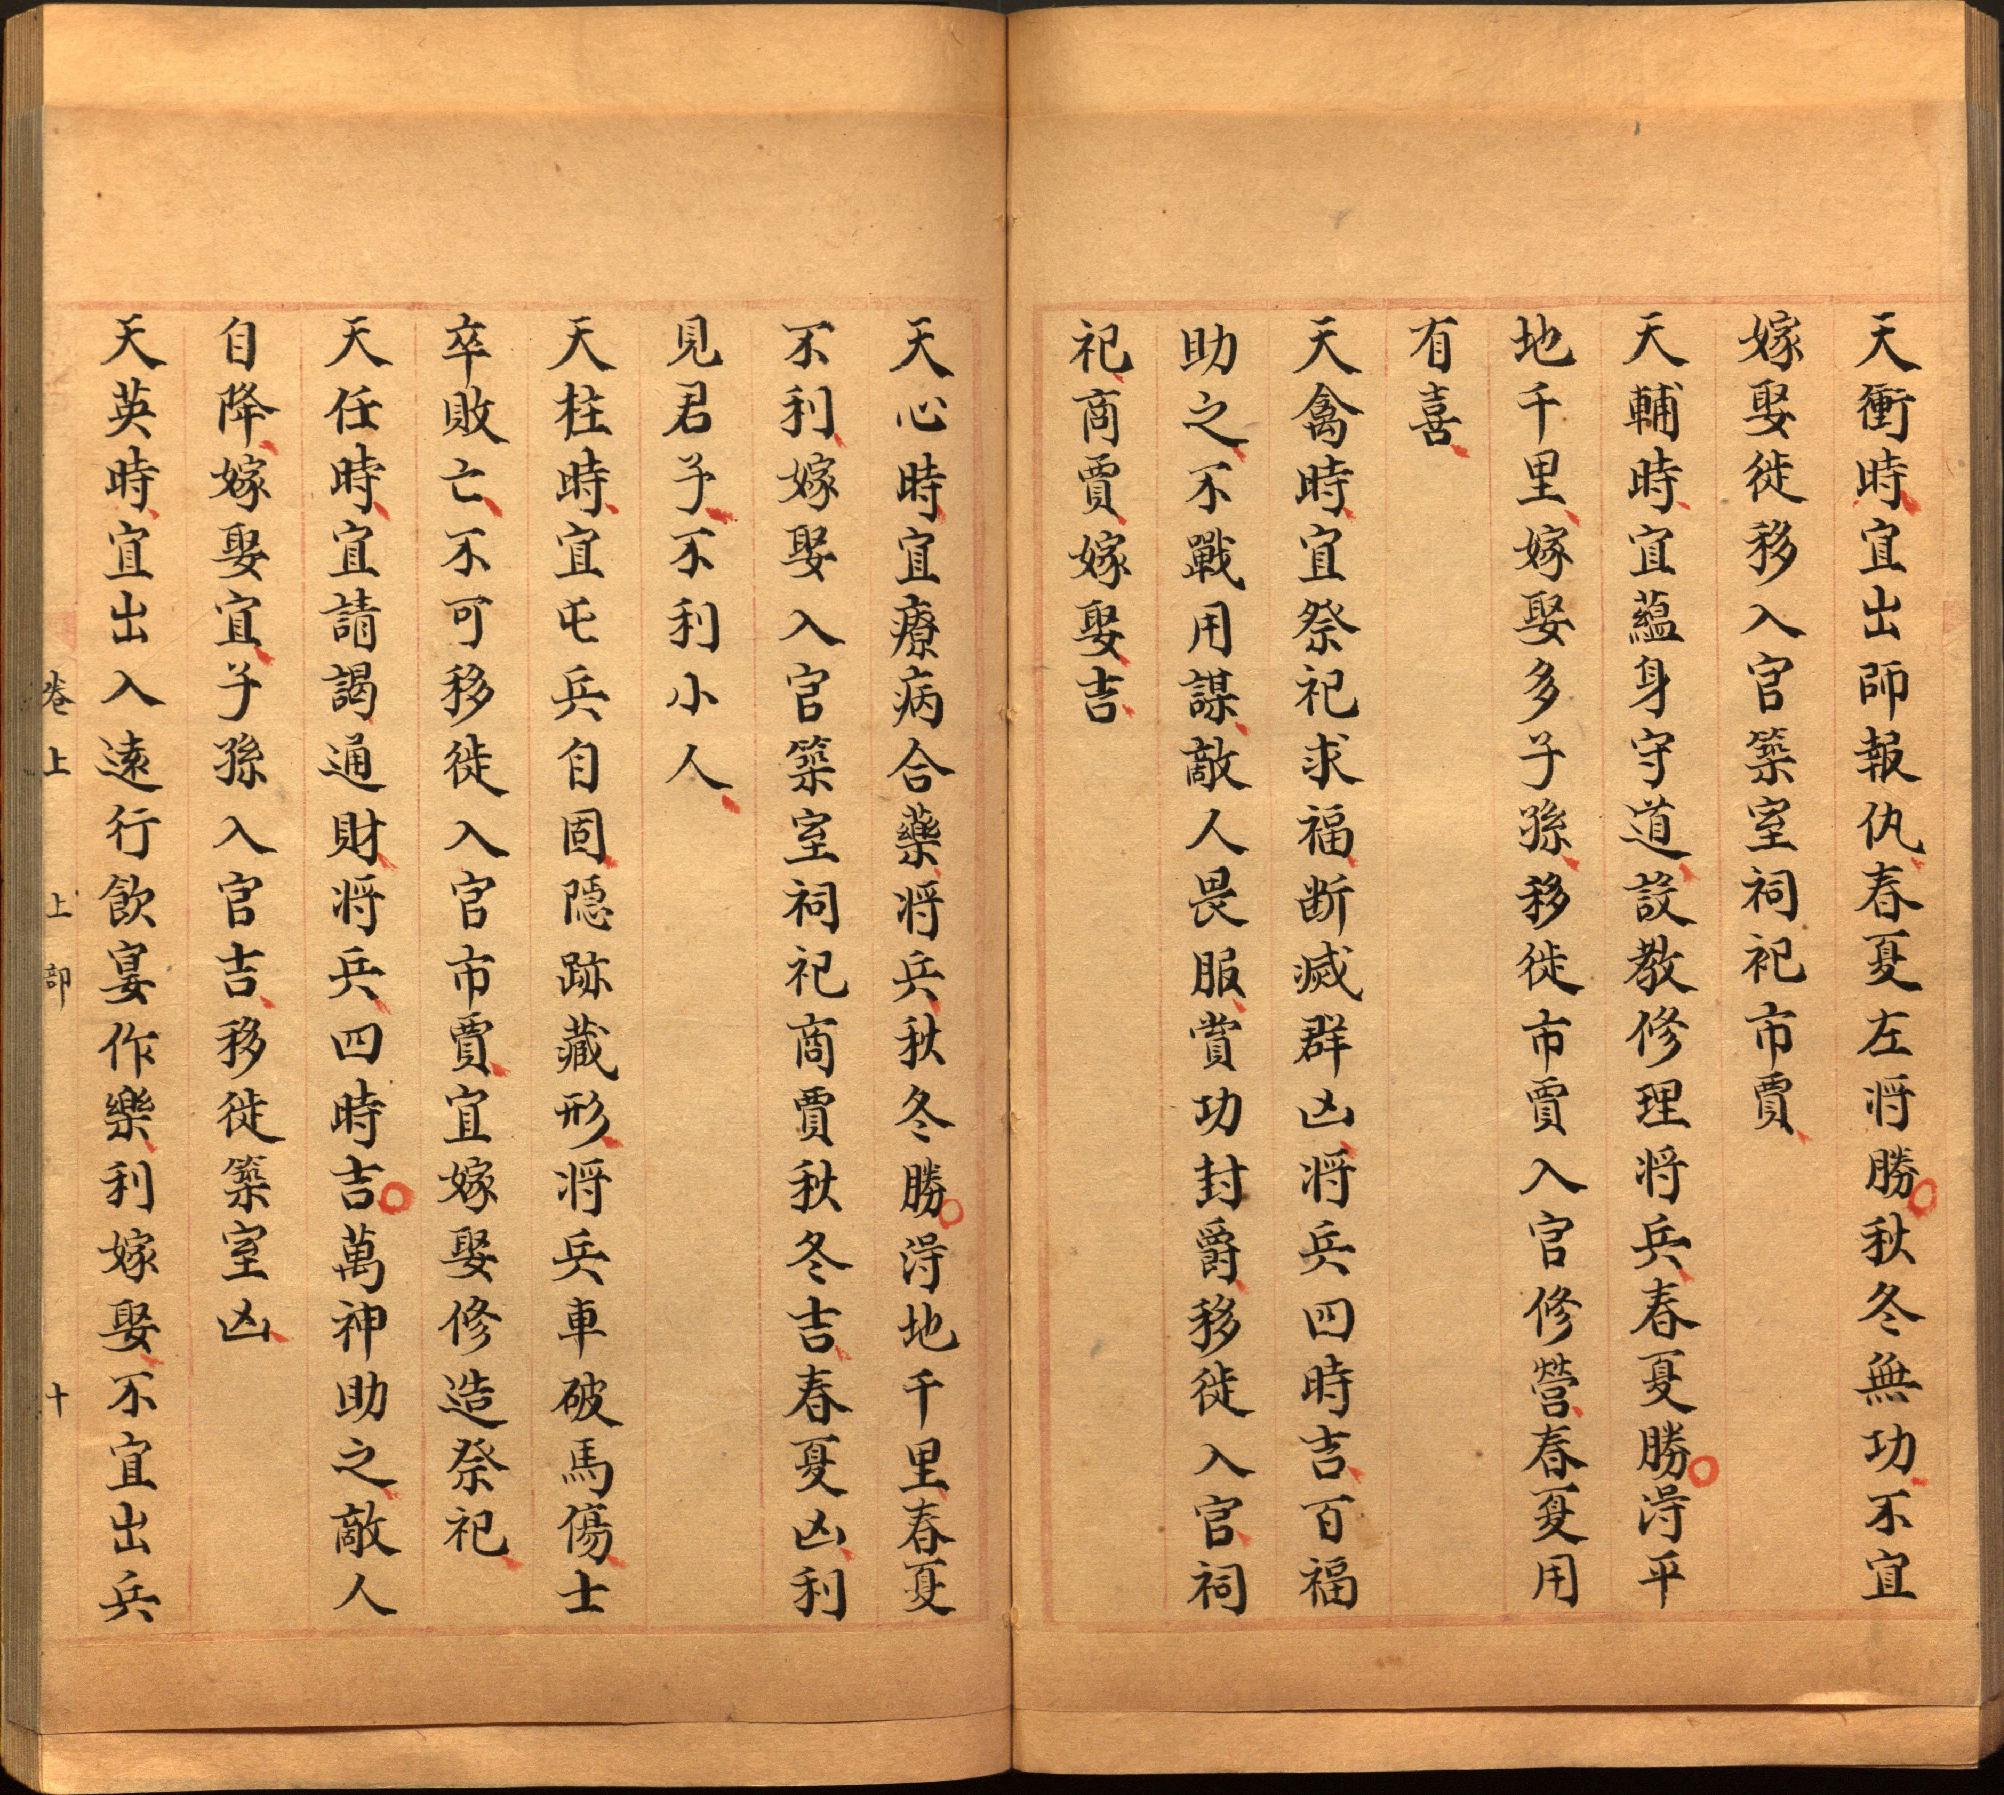 天衝時宜出師報仇春夏左将勝秋冬無功不宜
嫁娶徙移入官築室祠祀市賈
天輔時宜蘊身守道設教修理将兵春夏勝淂平
地千里嫁娶多子孫移徙市賈入官修營春夏用
有喜
天禽時宜祭祀求福断滅群凶将兵四時吉百福
助之不戰用謀敵人畏服賞功封爵移徙入官祠
祀商賈嫁娶吉
天心時宜療病合藥将兵秋冬勝淂地千里春夏
不利嫁娶入官築室祠祀商賈秋冬吉春夏凶利
見君子不利小人
天柱時宜屯兵自固隱跡藏形将兵車破馬傷士
卒敗亡不可移徙入官市賈宜嫁娶修造祭祀
天任時宜請謁通財将兵四時吉萬神助之敵人
自降嫁娶宜子孫入官吉移徙築室凶
天英時宜出入遠行飲宴作樂利嫁娶不宜出兵
卷上 上部 十